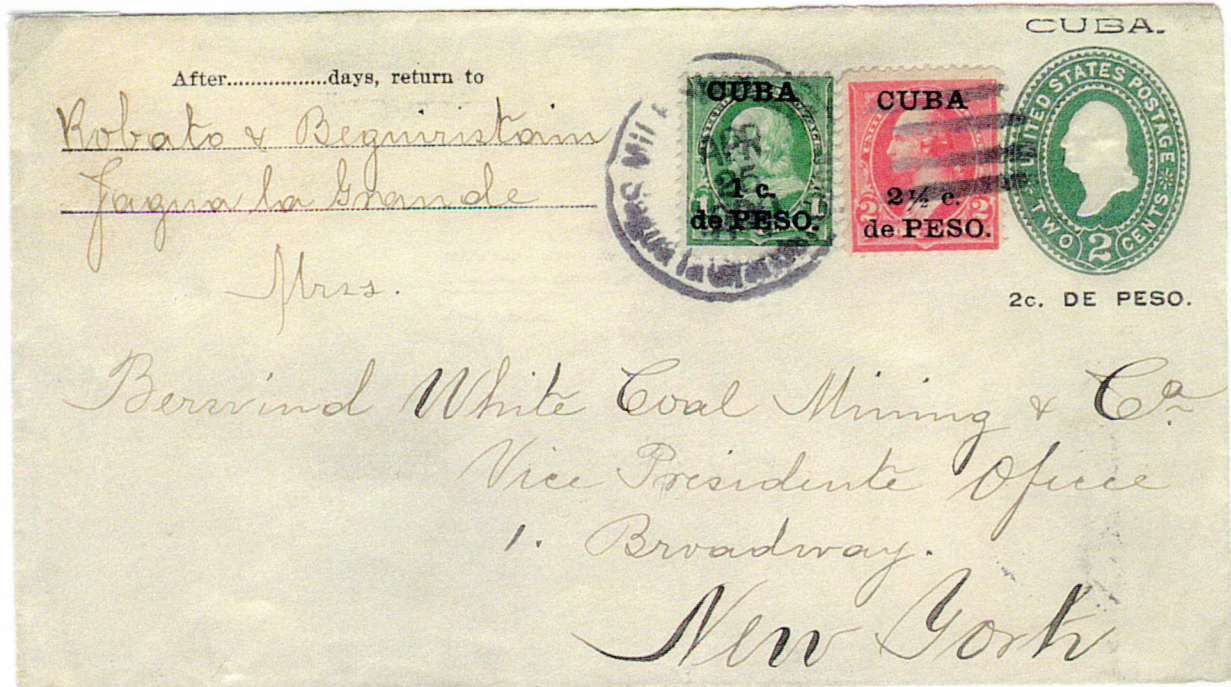 CUBA.
After.................days, return to
Robato & Beguiristain
Sagua la Grande
CUBA
1 c.
de PESO.
CUBA
2½ c.
de PESO.
UNITED STATES POSTAGE
TWO 2 CENTS
2c. DE PESO.
APR
25
Mrss.
Berwind White Coal Mining & Cª
Vice Presidente Oficce
1. Broadway.
New York